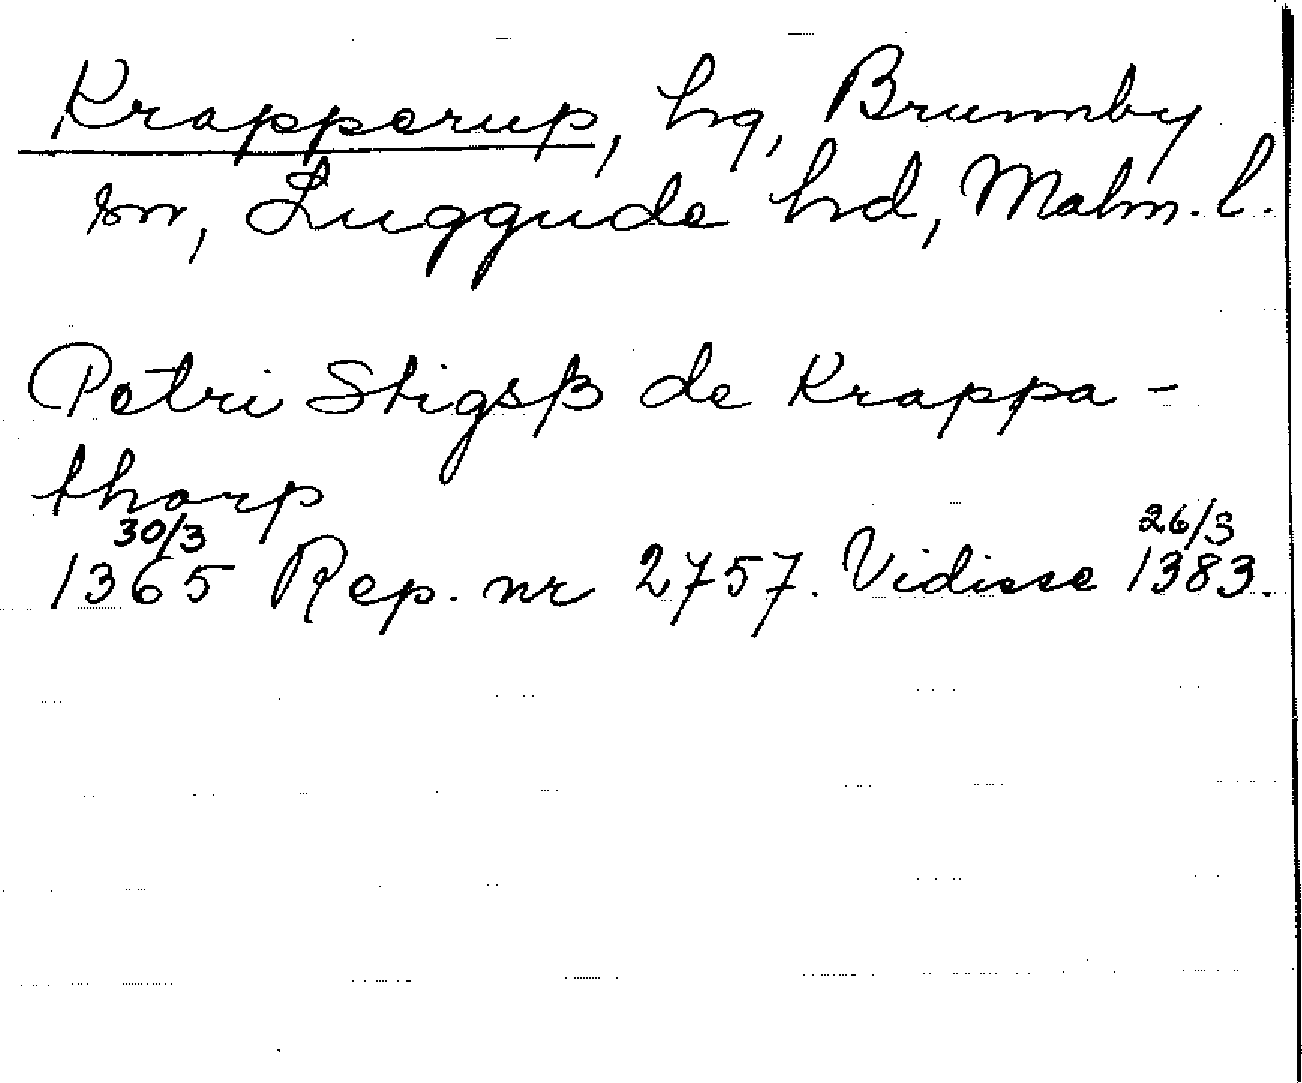 Krapperup, hg, Brunnby
sn, Luggude hd, Malm. l.
Petri Stigsß de Krappa-
thorp
30/3 26/3
1365 Rep. nr 2757. Vidisse 1383.